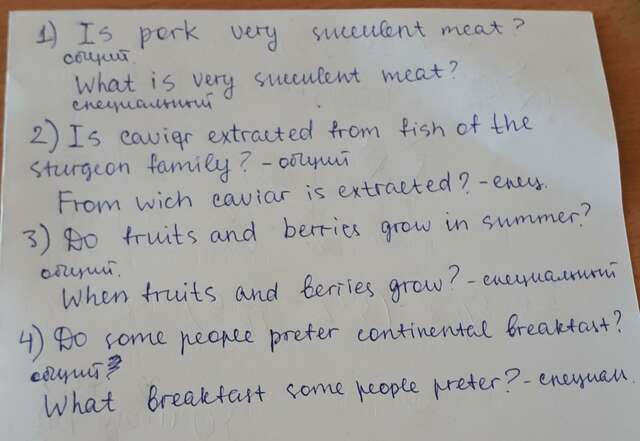 1) Is pork very succulent meat?
общий.
What is very succulent meat?
специальный
2) Is caviar extracted from fish of the
sturgeon family? - общий
From wich caviar is extracted? - спец.
3) Do fruits and berries grow in summer?
общий.
When fruits and berries grow? - специальный
4) Do some people prefer continental breakfast?
общий?
What breakfast some people prefer? - специал.